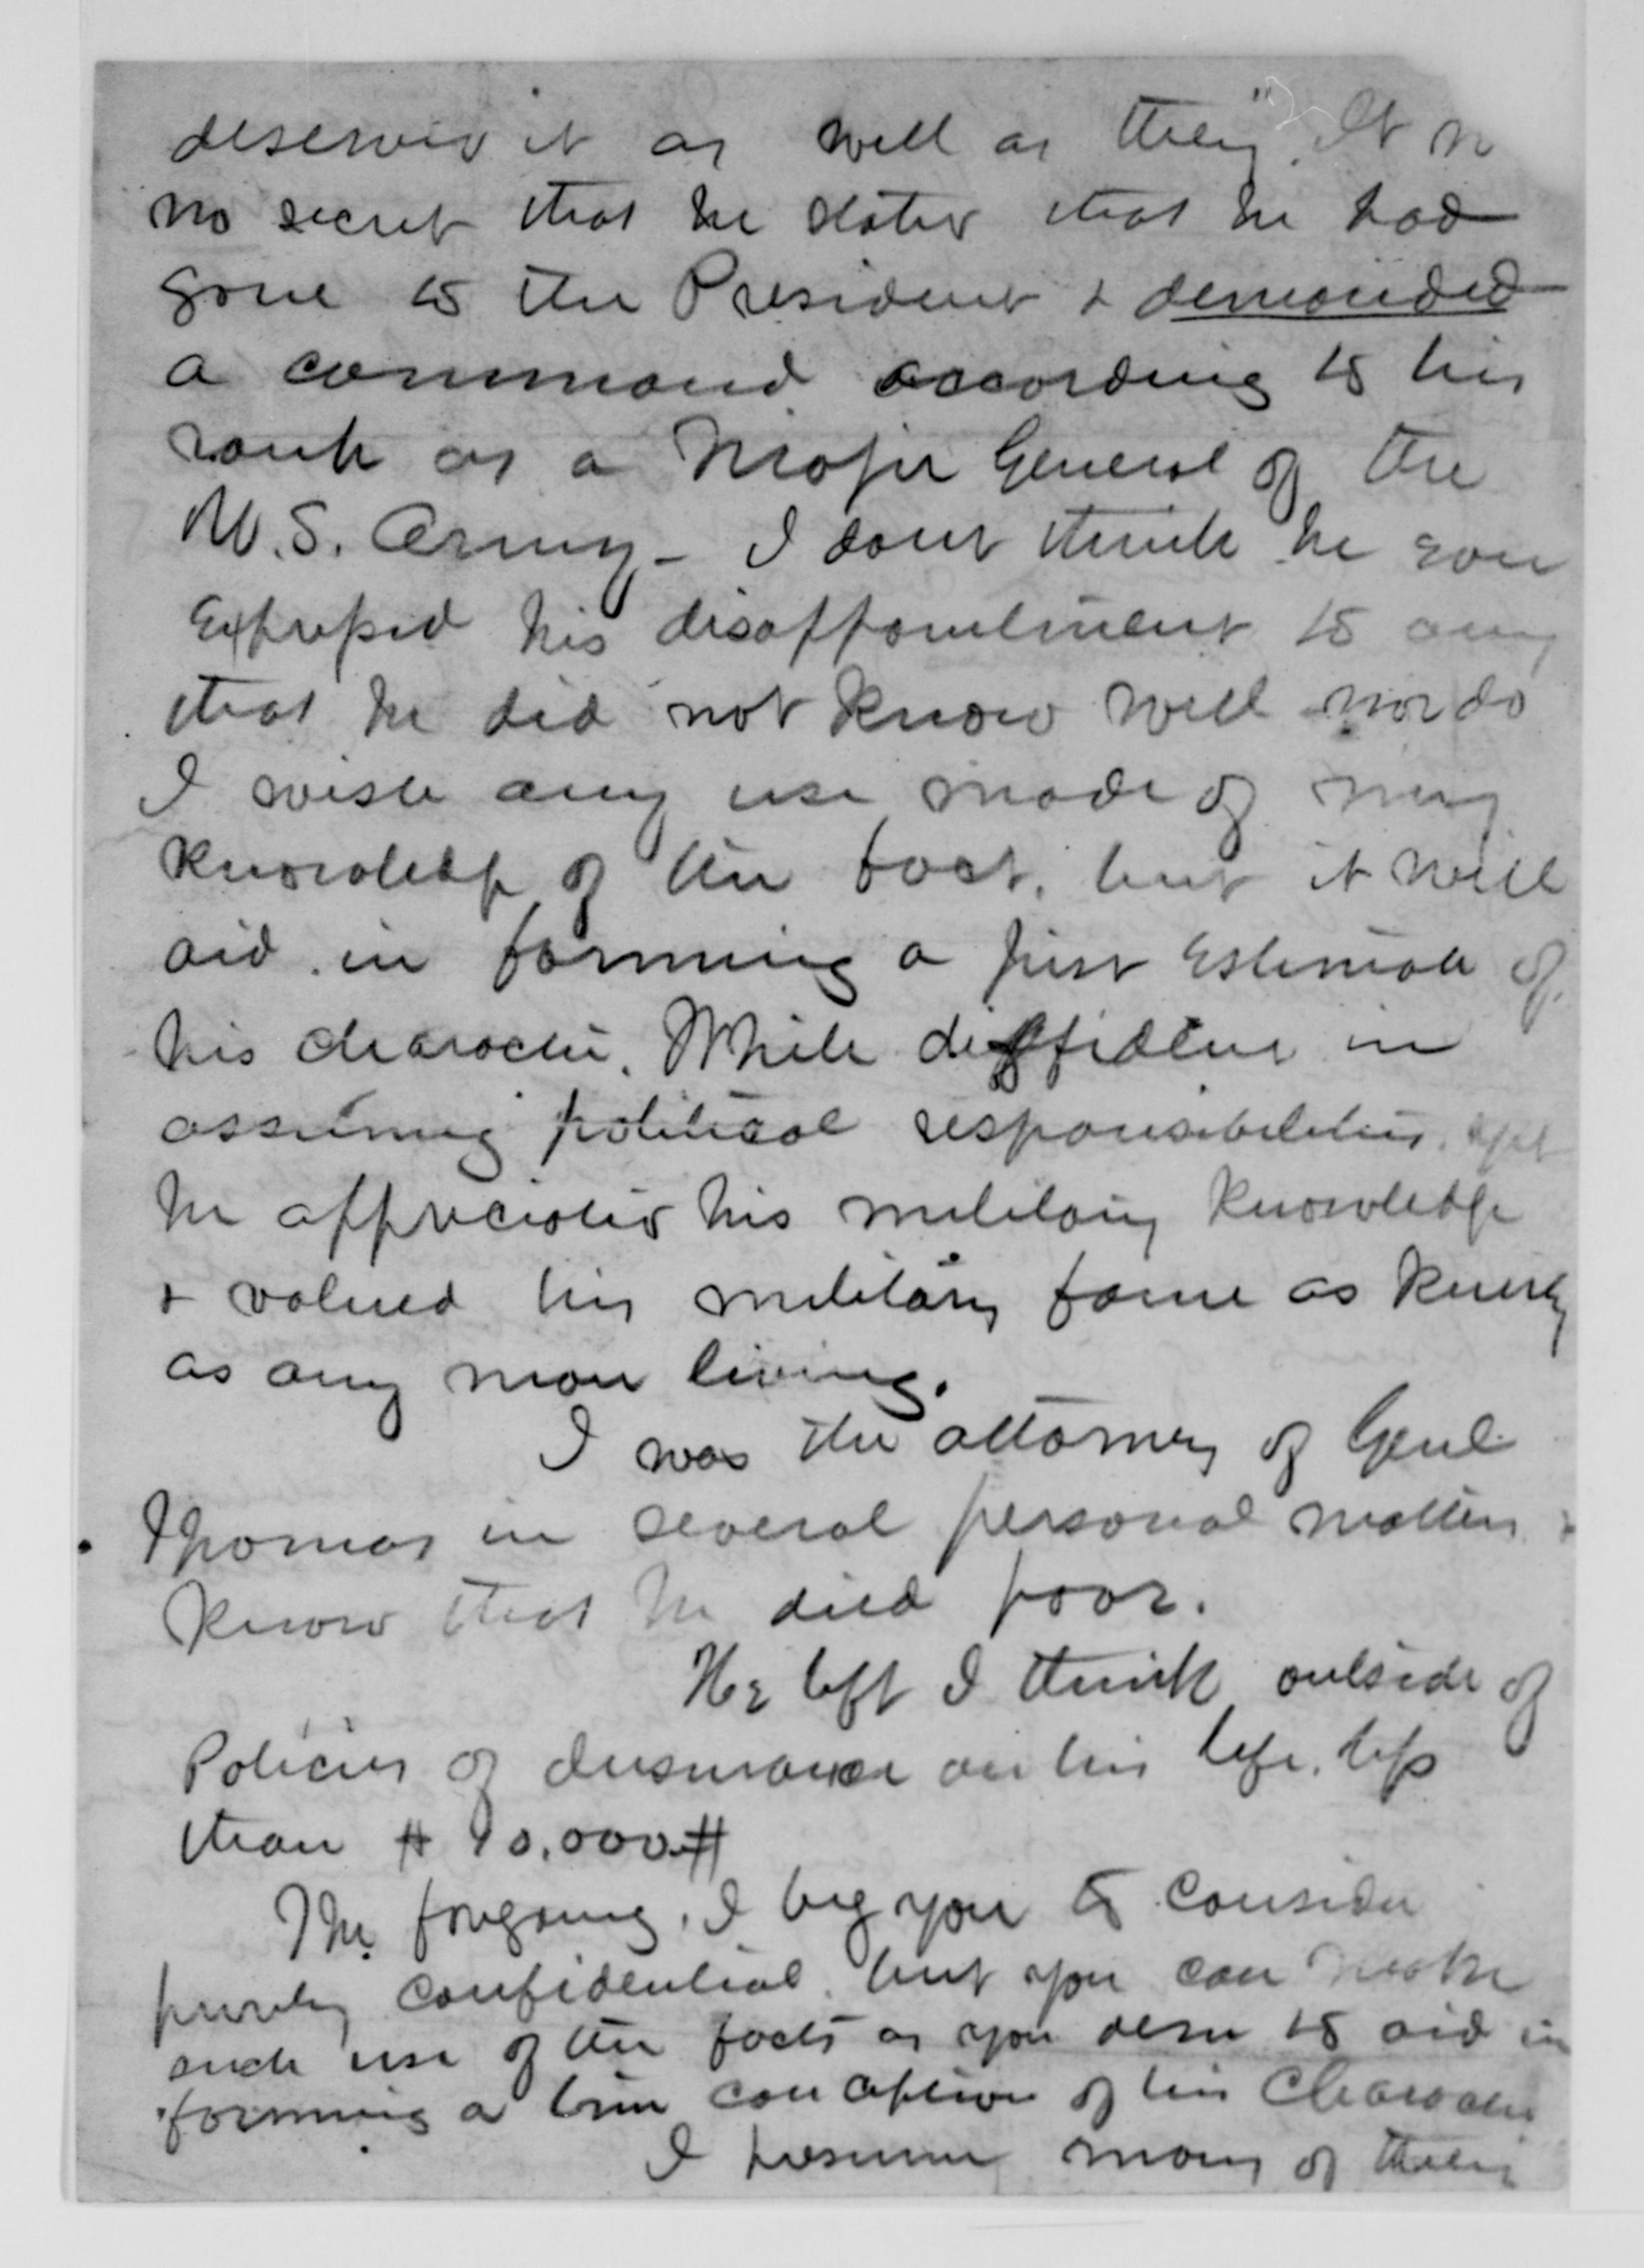 deserved it as well as they". It is
no secret that he states that he had
gone to the President & demanded
a command according to his
rank as a Major General of the
U.S. Army - I dont think he ever
expressed his disappointment to any
that he did not know well nor do
I wish any use made of my
knowledge of the fact, but it will
aid in forming a just estimate of
his character. While diffident in
assuming political responsibilities, yet
he appreciated his military knowledge
& valued his military fame as keenly
as any man living.
I was the attorney of Genl
Thomas in several personal matters &
know that he died poor.
He left I think outside of
Policies of Insurance on his life, less
than $ 10.000.$
The foregoing, I beg you to consider
purely confidential, but you can make
such use of the facts as you deem to aid in
forming a true conception of his Character
I presume many of them